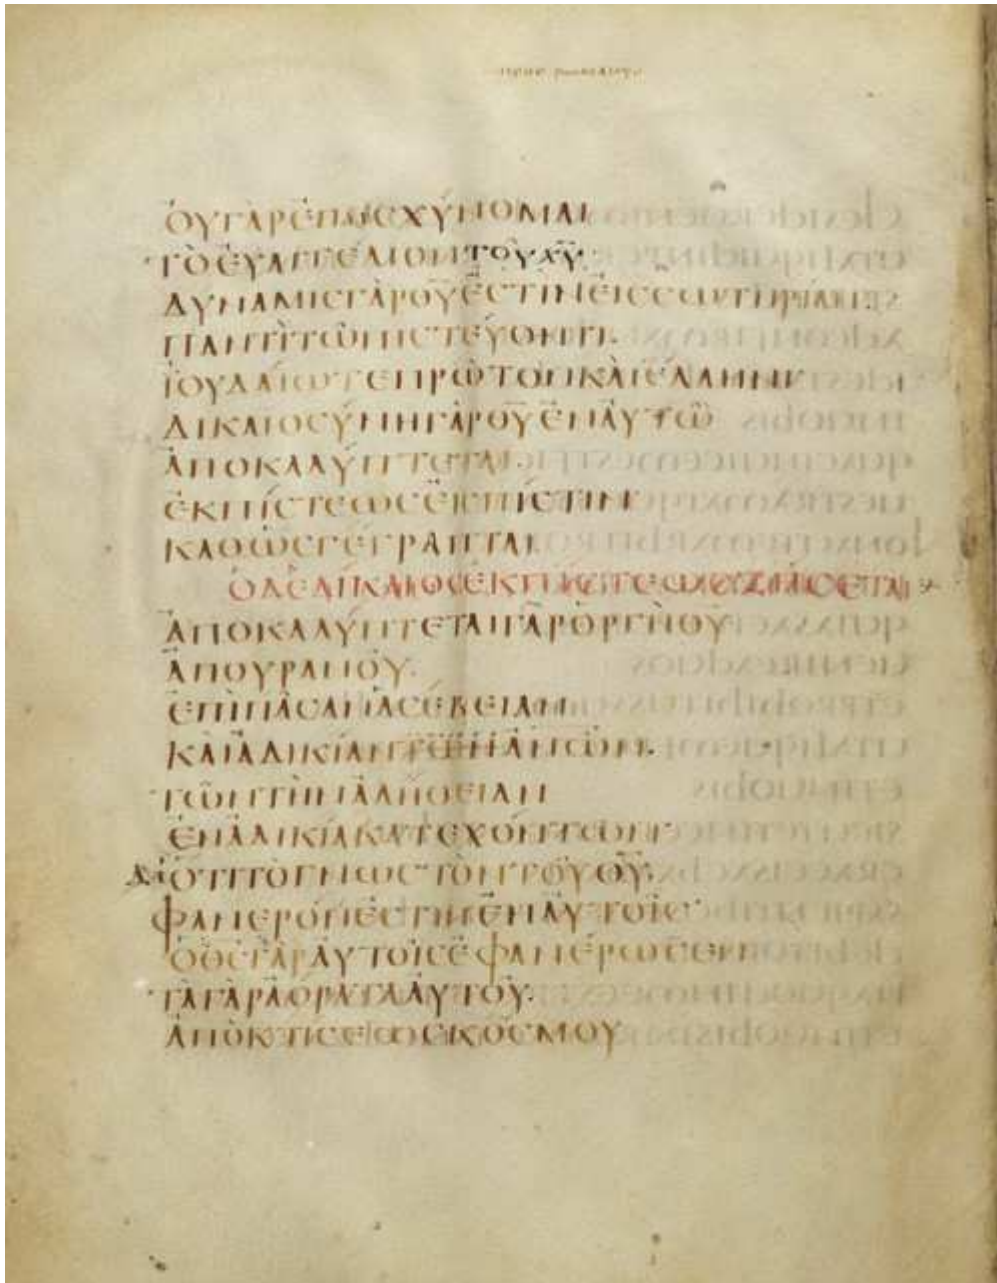 ΠΡΟC ΡΩΜΑΙΟΥC
ΟΥΓΑΡΕΠΑΙCΧΥΝΟΜΑΙ
ΤΟΕΥΑΓΓΕΛΙΟΝΤΟΥΧΥ
ΔΥΝΑΜΙCΓΑΡΘΥΕCΤΙΝΕΙCCΩΤΗΡΙΑΝ
ΠΑΝΤΙΤΩΠΙCΤΕΥΟΝΤΙ.
ΙΟΥΔΑΙΩΤΕΠΡΩΤΟΝΚΑΙΕΛΛΗΝΙ
ΔΙΚΑΙΟCΥΝΗΓΑΡΘΥΕΝΑΥΤΩ
ΑΠΟΚΑΛΥΠΤΕΤΑΙ.
ΕΚΠΙCΤΕΩCΕΙCΠΙCΤΙΝ
ΚΑΘΩCΓΕΓΡΑΠΤΑΙ
ΟΔΕΔΙΚΑΙΟCΕΚΠΙCΤΕΩCΖΗCΕΤΑΙ
ΑΠΟΚΑΛΥΠΤΕΤΑΙΓΑΡΟΡΓΗΘΥ
ΑΠΟΥΡΑΝΟΥ.
ΕΠΙΠΑCΑΝΑCΕΒΕΙΑΝ
ΚΑΙΑΔΙΚΙΑΝΤΩΝΑΝΩΝ.
ΤΩΝΤΗΝΑΛΗΘΕΙΑΝ
ΕΝΑΔΙΚΙΑΚΑΤΕΧΟΝΤΩΝ
ΔΙΟΤΙΤΟΓΝΩCΤΟΝΤΟΥΘΥ.
ΦΑΝΕΡΟΝΕCΤΙΝΕΝΑΥΤΟΙC
ΟΘCΓΑΡΑΥΤΟΙCΕΦΑΝΕΡΩCΕΝ
ΤΑΓΑΡΑΟΡΑΤΑΑΥΤΟΥ.
ΑΠΟΚΤΙCΕΩCΚΟCΜΟΥ